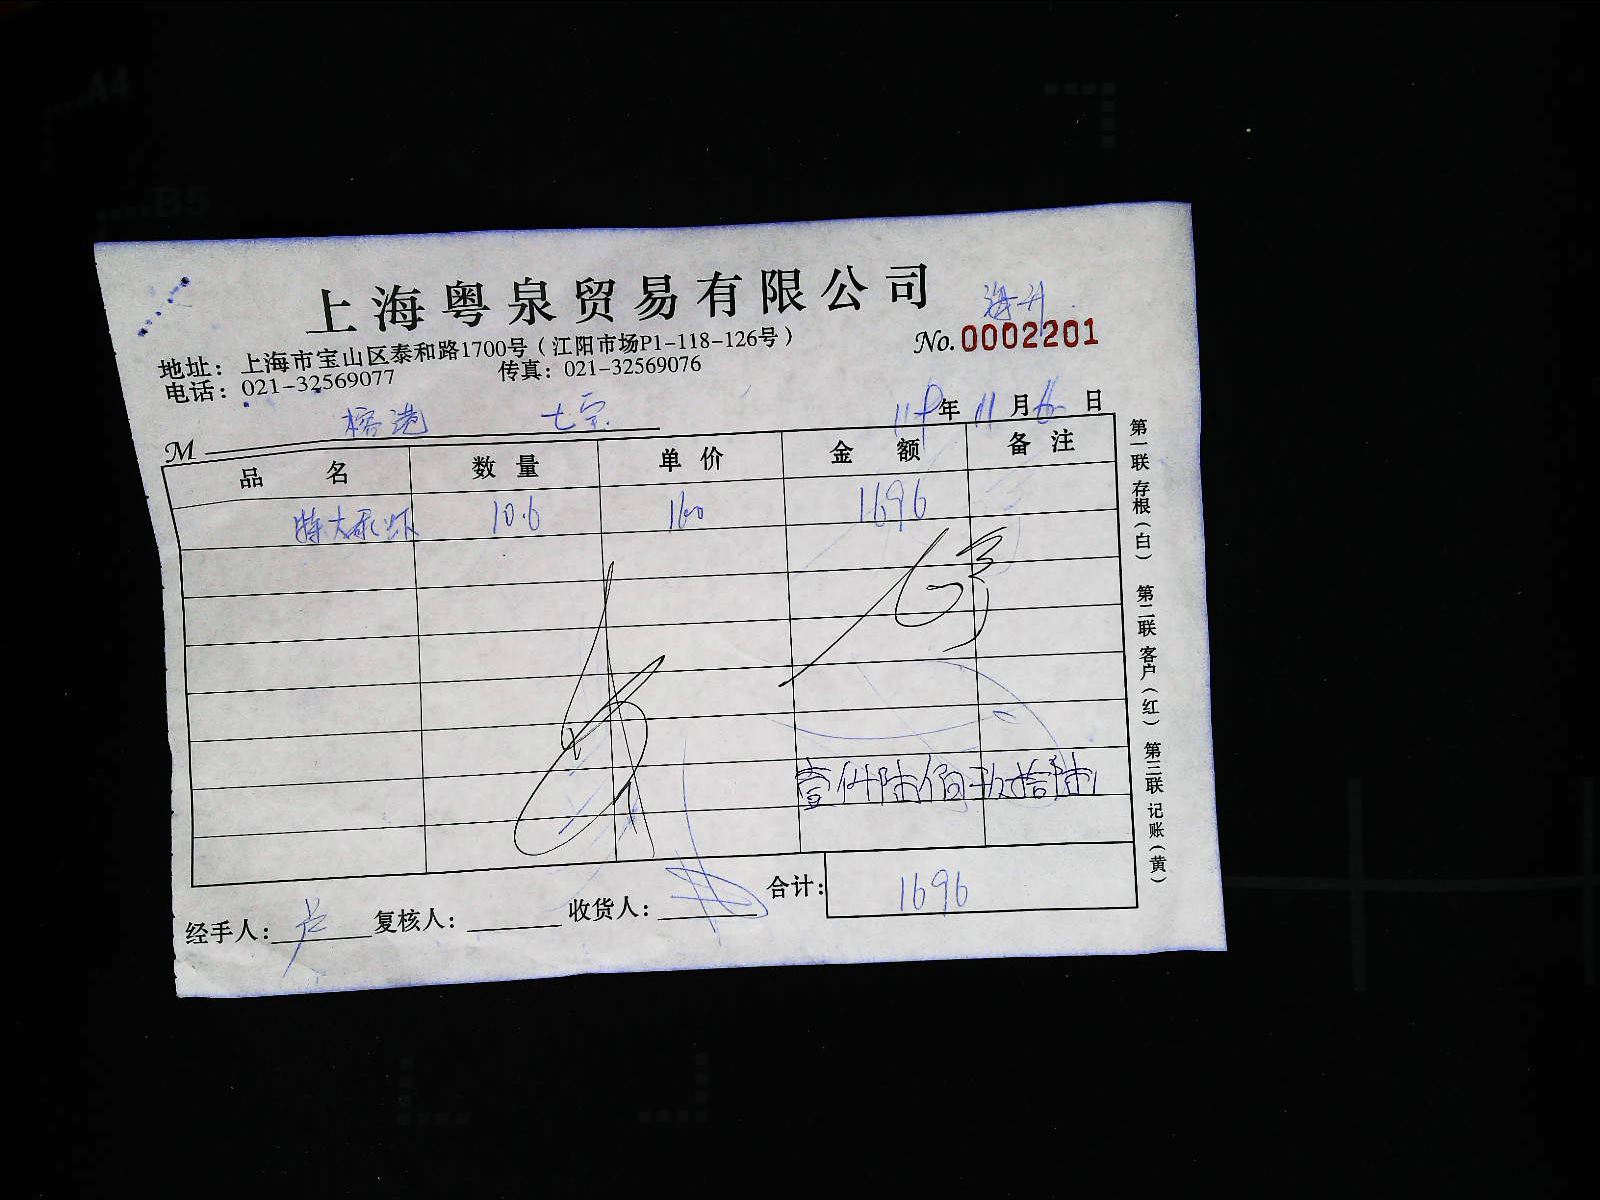 A4
B5
上海粤泉贸易有限公司
海升
地址：上海市宝山区泰和路1700号（江阳市场P1-118-126号）
No. 0002201
电话：021-32569077 传真：021-32569076
M 榕港 七宝
年 11 月 6 日
品名 数量 单价 金额 备注
特大 虾 10.6 160 1696
壹仟陆佰玖拾陆
合计： 1696
经手人： 复核人： 收货人：
第一联 存根（白） 第二联 客户（红） 第三联 记账（黄）